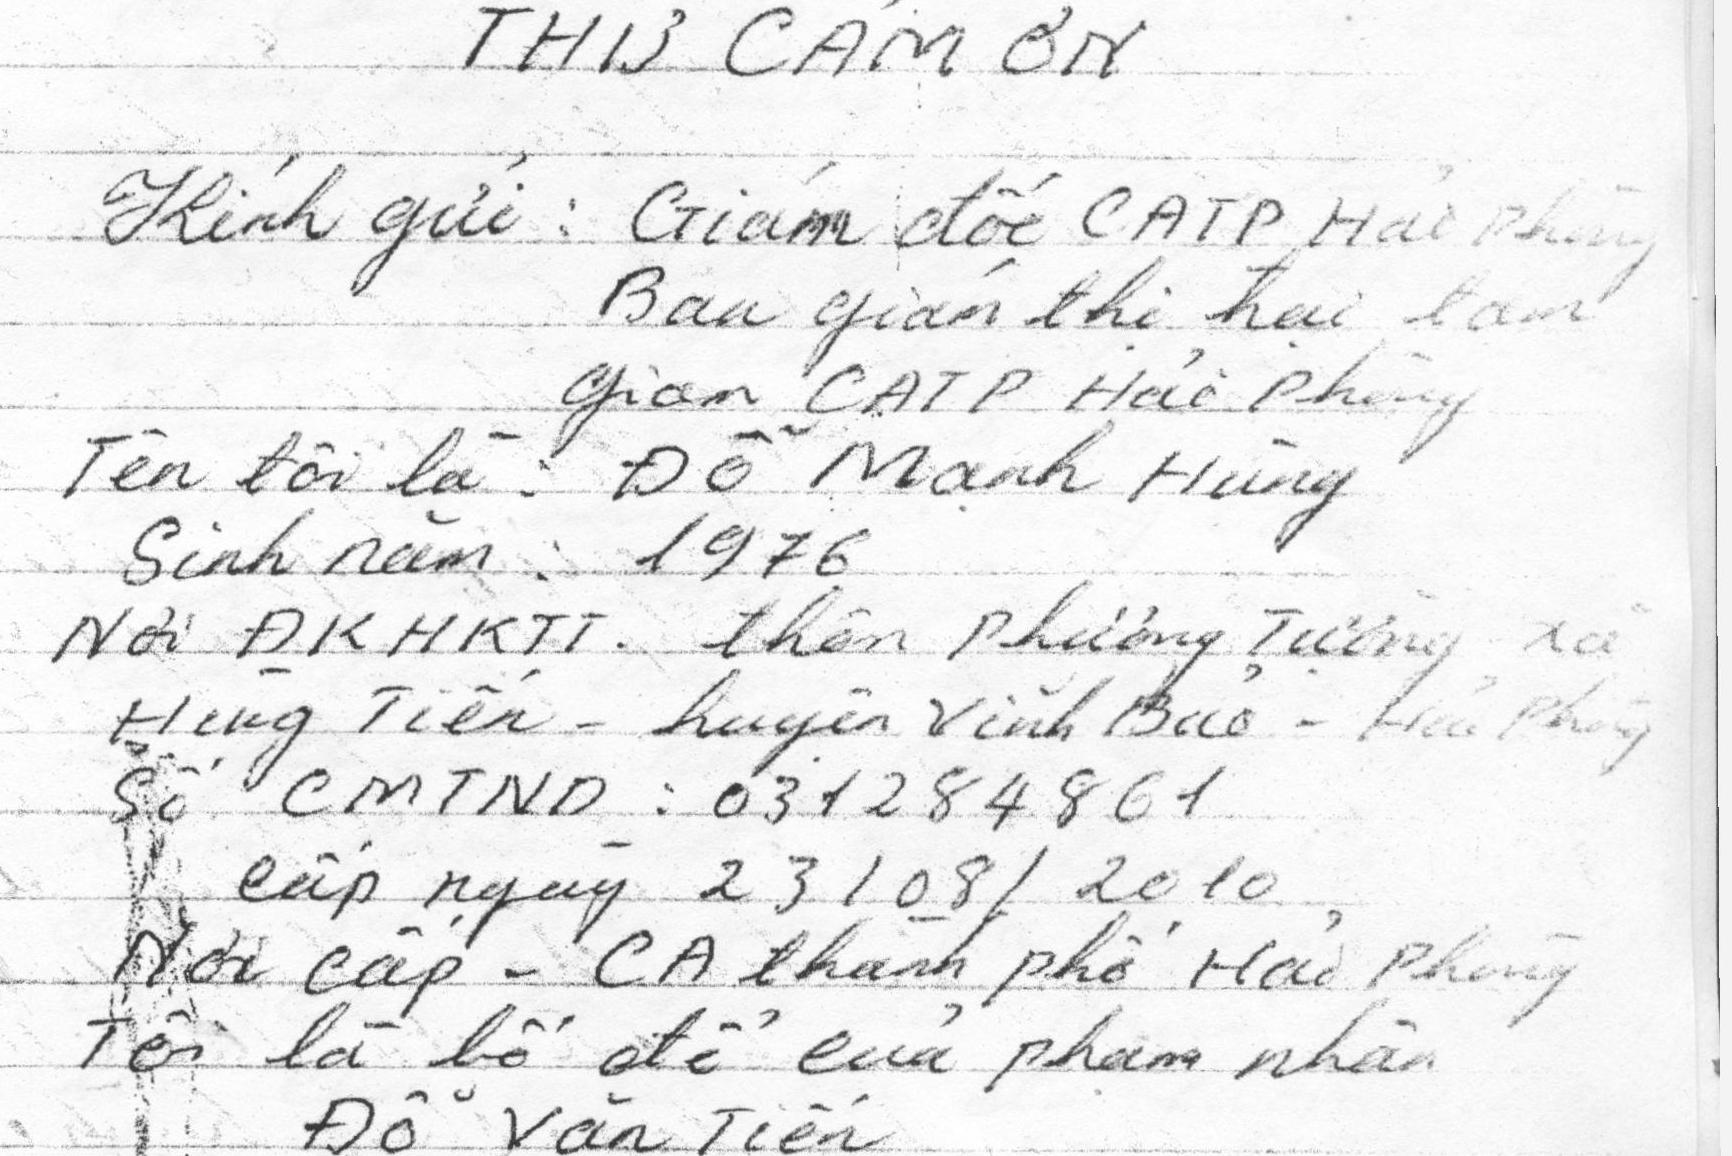 THƯ CẢM ƠN
Kính gửi : Giám đốc CATP Hải Phòng
Ban giám thị trại tạm
giam CATP Hải Phòng
Tên tôi là : Đỗ Mạnh Hùng
Sinh năm : 1976
Nơi ĐKHKTT. thôn Phương Tường xã
Hùng Tiến - huyện Vĩnh Bảo - Hải Phòng
Số CMTND : 031284861
Cấp ngày 23/08/2010
Nơi cấp - CA thành phố Hải Phòng
Tôi là bố đẻ của phạm nhân
Đỗ Văn Tiến